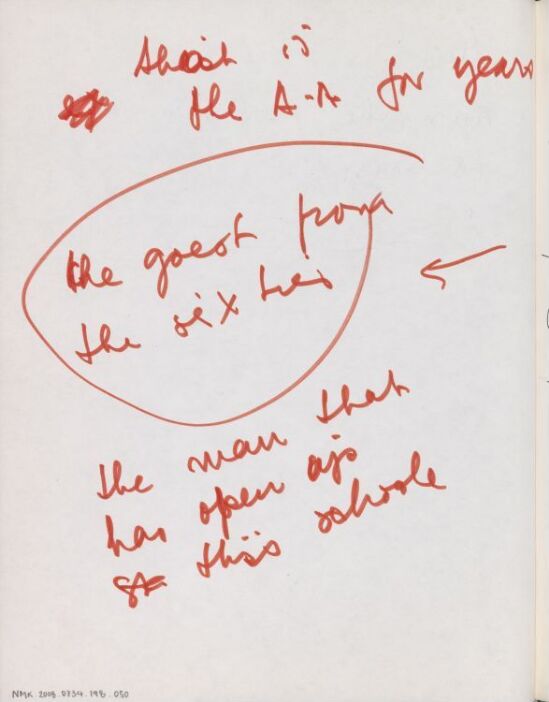 that is
the A-A for years
the goest from
the sixties
the man that
has open up
this schoole
NMK.2008.0734.198.050